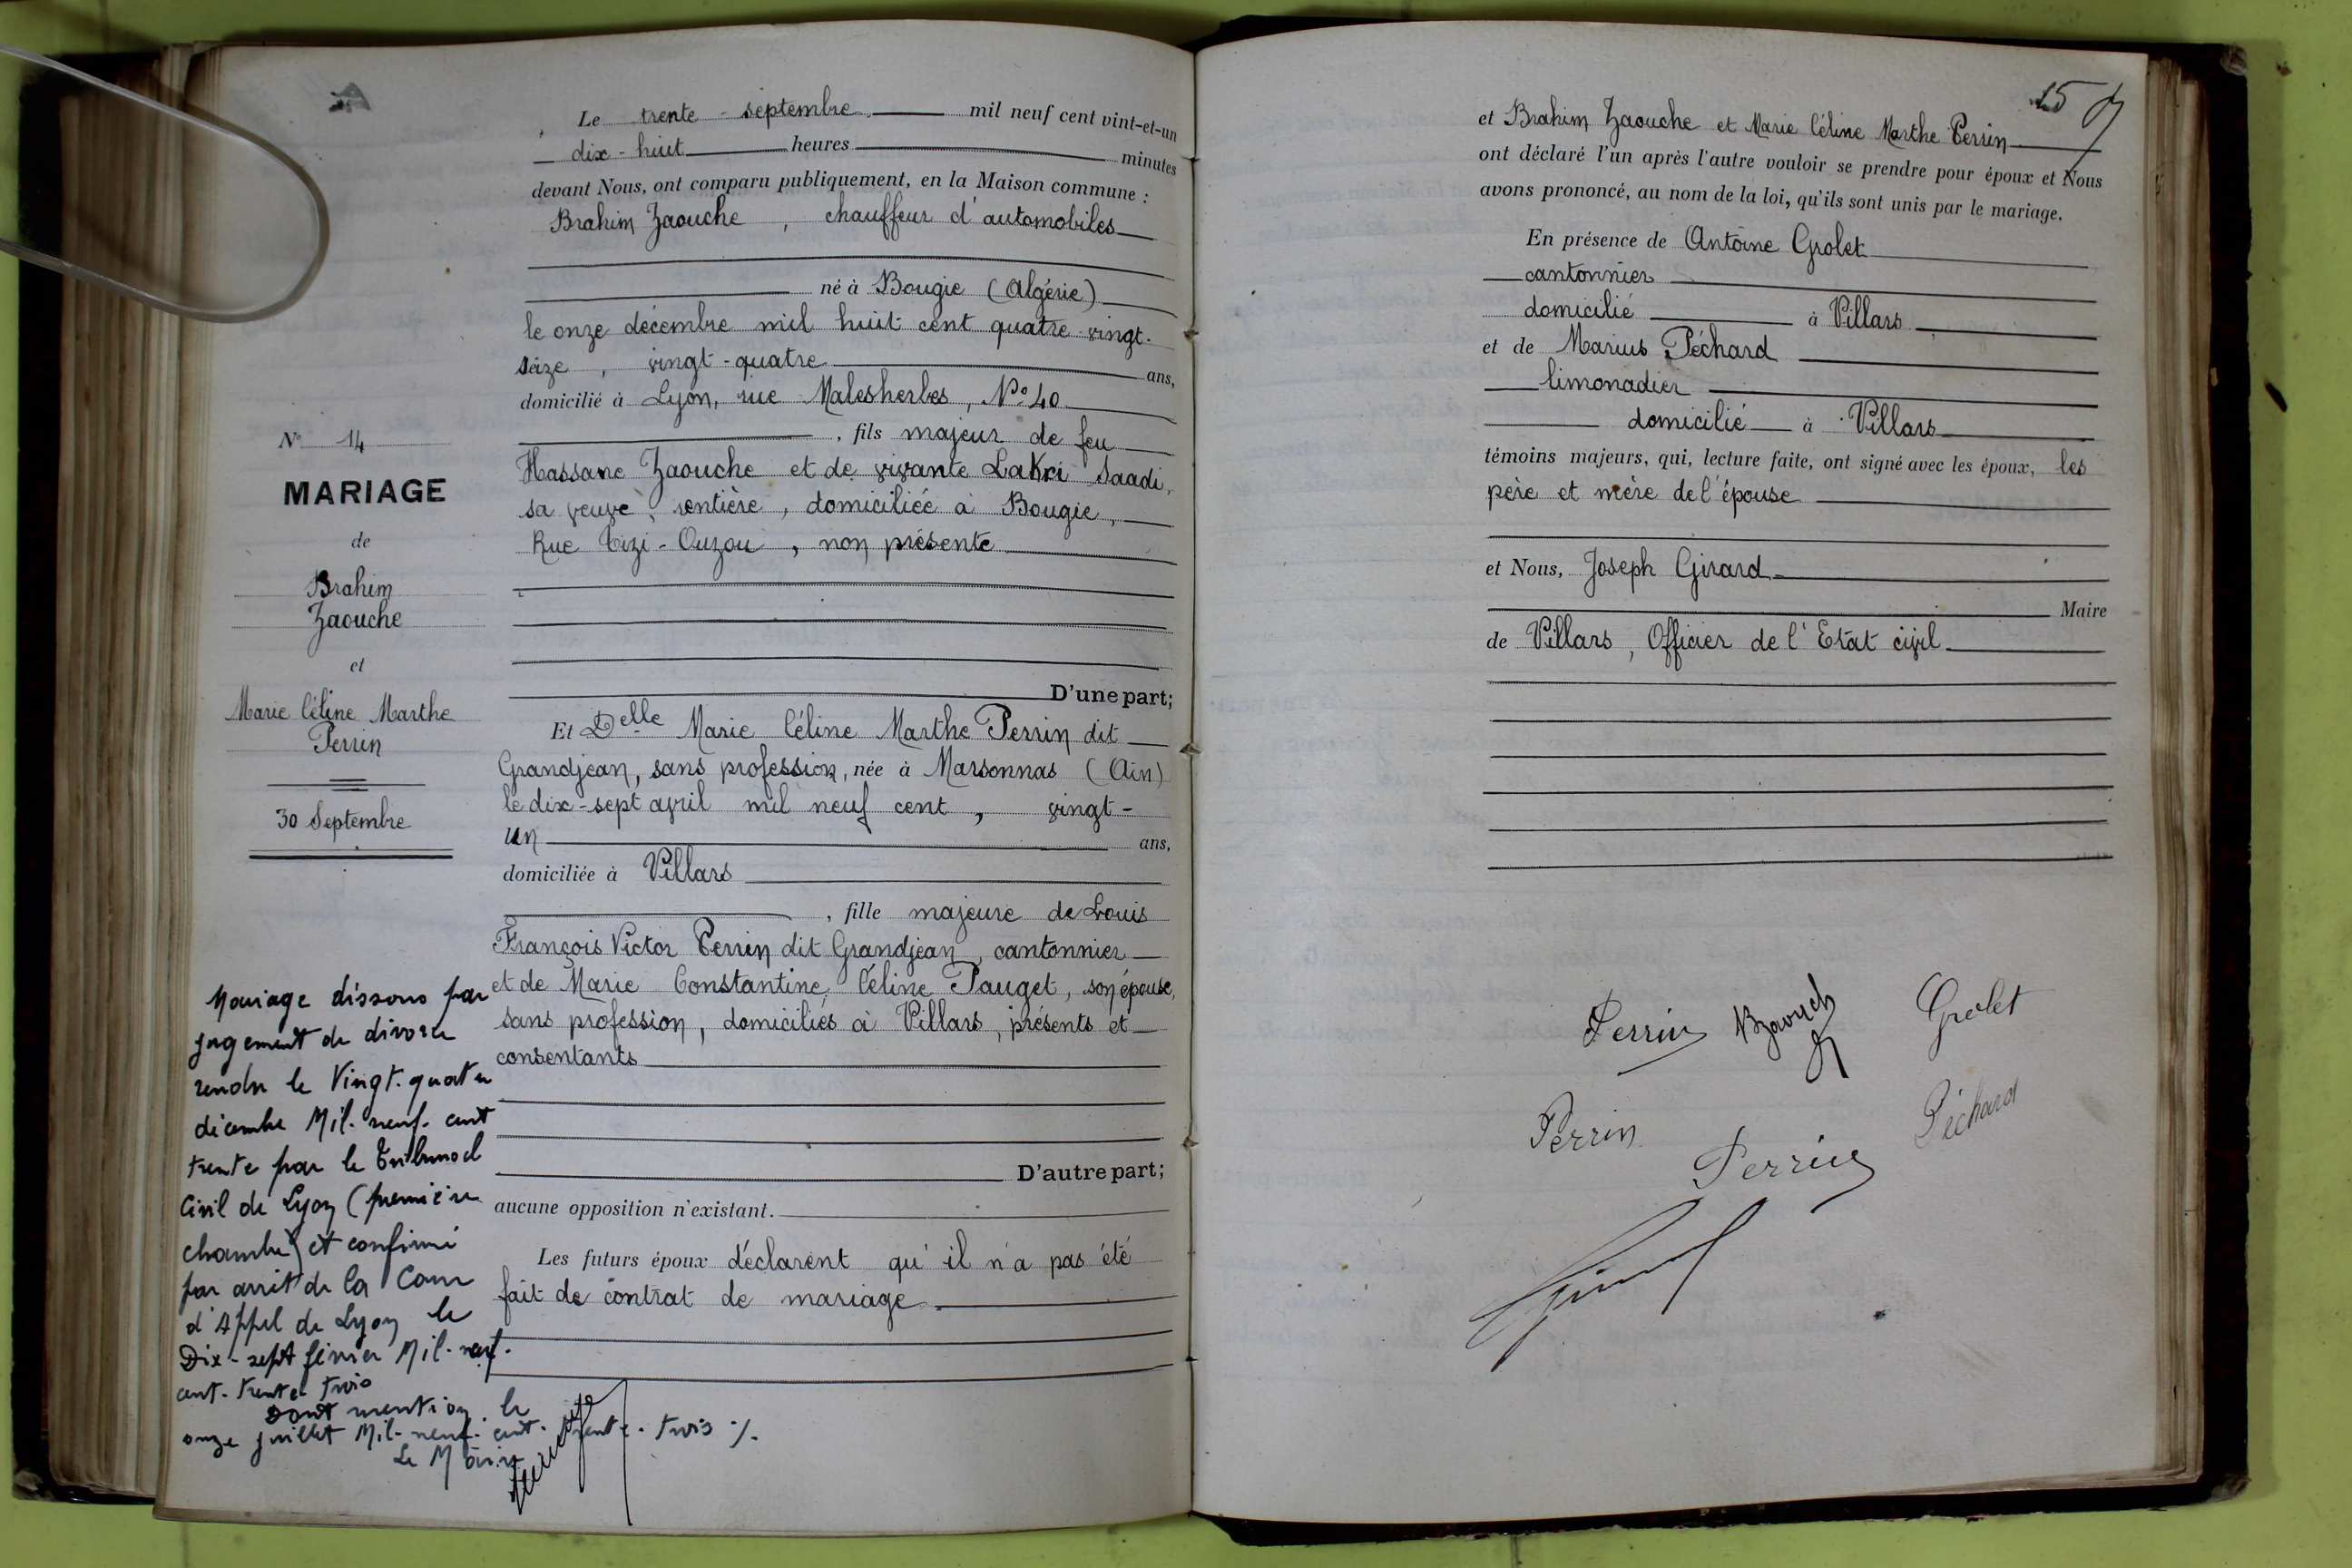 Le trente septembre mil neuf cent vint-et-un
dix-huit heures minutes
devant Nous, ont comparu publiquement, en la Maison commune :
Brahim Zaouche, chauffeur d'automobiles
né à Bougie (Algérie)
le onze décembre mil huit cent quatre-vingt-
seize, vingt-quatre ans,
domicilié à Lyon, rue Malesherbes, No 40
, fils majeur de feu
Hassane Zaouche et de vivante Lakri Saadi,
sa veuve, rentière, domiciliée à Bougie,
Rue Tizi-Ouzou, non présente
D'une part;
Et Delle Marie Céline Marthe Perrin dit
Grandjean, sans profession, née à Marsonnas (Ain)
le dix-sept avril mil neuf cent, vingt-
un ans,
domiciliée à Villars
, fille majeure de Louis
François Victor Perrin dit Grandjean, cantonnier
et de Marie Constantine Céline Pauget, son épouse,
sans profession, domiciliés à Villars, présents et
consentants
D'autre part;
aucune opposition n'existant.
Les futurs époux déclarent qu'il n'a pas été
fait de contrat de mariage.
No 14
MARIAGE
de
Brahim
Zaouche
et
Marie Céline Marthe
Perrin
30 Septembre
Mariage dissous par
jugement de divorce
rendu le Vingt-quatre
décembre Mil-neuf-cent
trente par le Tribunal
Civil de Lyon (première
chambre) et confirmé
par arrêt de la Cour
d'Appel de Lyon le
Dix-sept février Mil-neuf-
cent-trente trois
Dont mention le
onze juillet Mil-neuf-cent-trente-trois ./.
Le Maire
25
et Brahim Zaouche et Marie Céline Marthe Perrin
ont déclaré l'un après l'autre vouloir se prendre pour époux et Nous
avons prononcé, au nom de la loi, qu'ils sont unis par le mariage.
En présence de Antoine Grolet
cantonnier
domicilié à Villars
et de Marius Péchard
limonadier
domicilié à Villars
témoins majeurs, qui, lecture faite, ont signé avec les époux, les
père et mère de l'épouse
et Nous, Joseph Girard
Maire
de Villars, Officier de l'Etat civil
Perrin BZaouch Grolet
Perrin Perrin Péchard